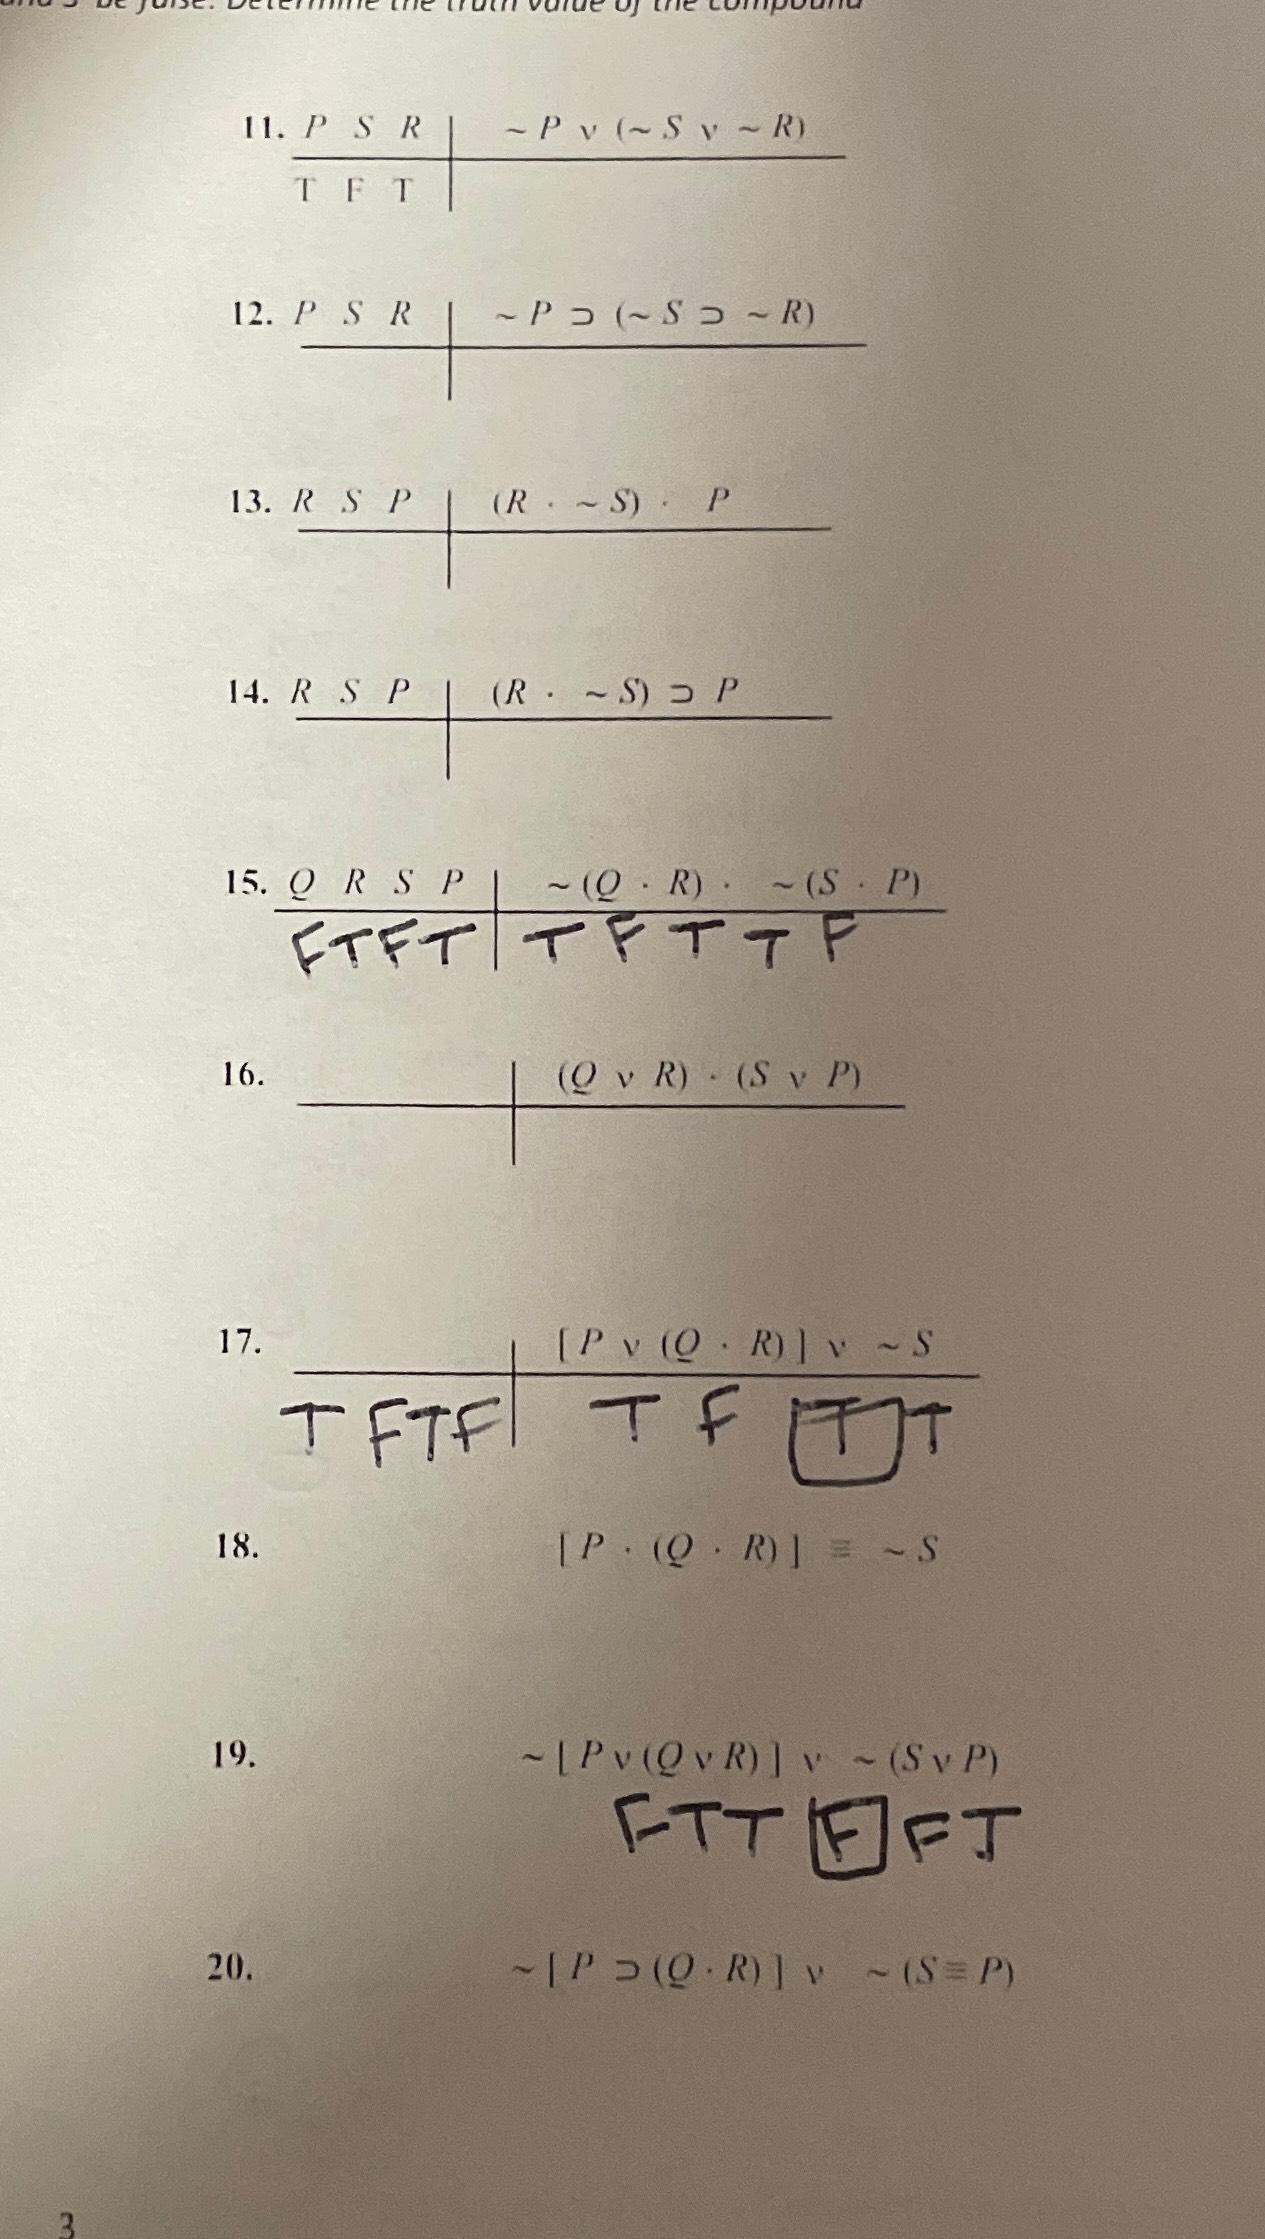 and S be false. Determine the truth value of the compound
11. P S R | ~ P v (~ S v ~ R)
T F T
12. P S R | ~ P ⊃ (~ S ⊃ ~ R)
13. R S P | (R · ~ S) · P
14. R S P | (R · ~ S) ⊃ P
15. Q R S P | ~ (Q · R) · ~ (S · P)
F T F T | T F T T F
16. | (Q v R) · (S v P)
17. | [ P v (Q · R) ] v ~ S
T F T F | T F T T
18. [ P · (Q · R) ] ≡ ~ S
19. ~ [ P v (Q v R) ] v ~ (S v P)
F T T F F T
20. ~ [ P ⊃ (Q · R) ] v ~ (S ≡ P)
3